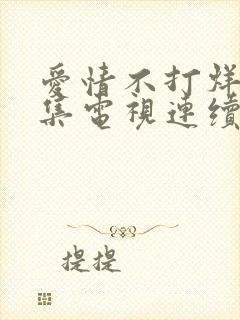 愛情不打烊
集電視連續
提提